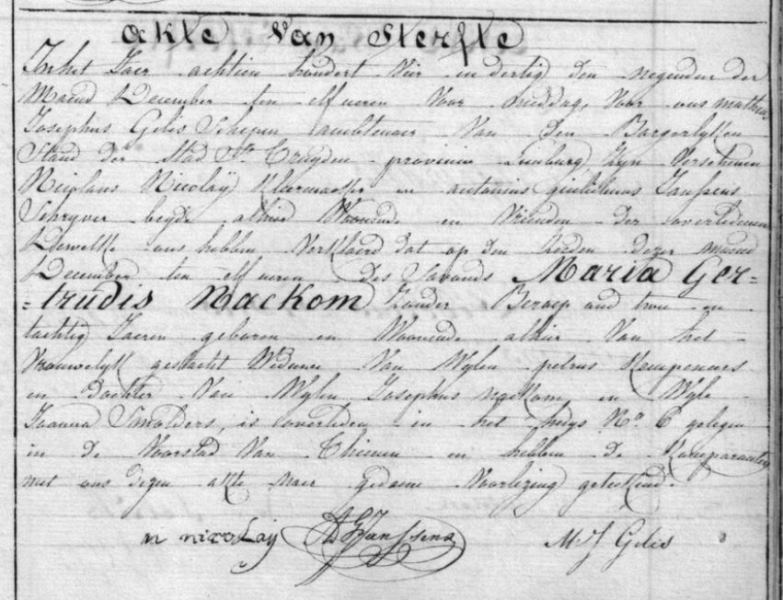 akte Van Sterfte
In het Jaer achtien hondert vier en dertig den negenden der
Maend December ten elf ueren Voor middag, Voor ons mathias
Josephus Gelis Schepen ambtenaer Van Den Borgerlyken
Stand der Stad St Truyden provincie Limburg Zyn Verschenen
Nicolaus Nicolaÿ Kleermaeker en antonius guilielmus Janssens
Schryver beyde alhier Woonende en Vrienden der overledenen
Dewelke ons hebben Verklaerd dat op den dezer maend
December ten elf ueren des Savonds Maria Ger-
-trudis Nackom Zonder Beroep oud twee en
tachtig Jaeren geboren en Woonende alhier Van het
Vrouwelyk geslacht Weduwe Van Wylen petrus Kempeneers
en Dochter Van Wylen Josephus nackom en Wyle
Joanna Smolders, is overleden in het huys No 6 gelegen
in de Voorstad Van Thienen en hebben de Komparanten
met ons dezen akte naer gedaene Voorlezing geteekend.
n nicolaÿ A G Janssens M J Gelis